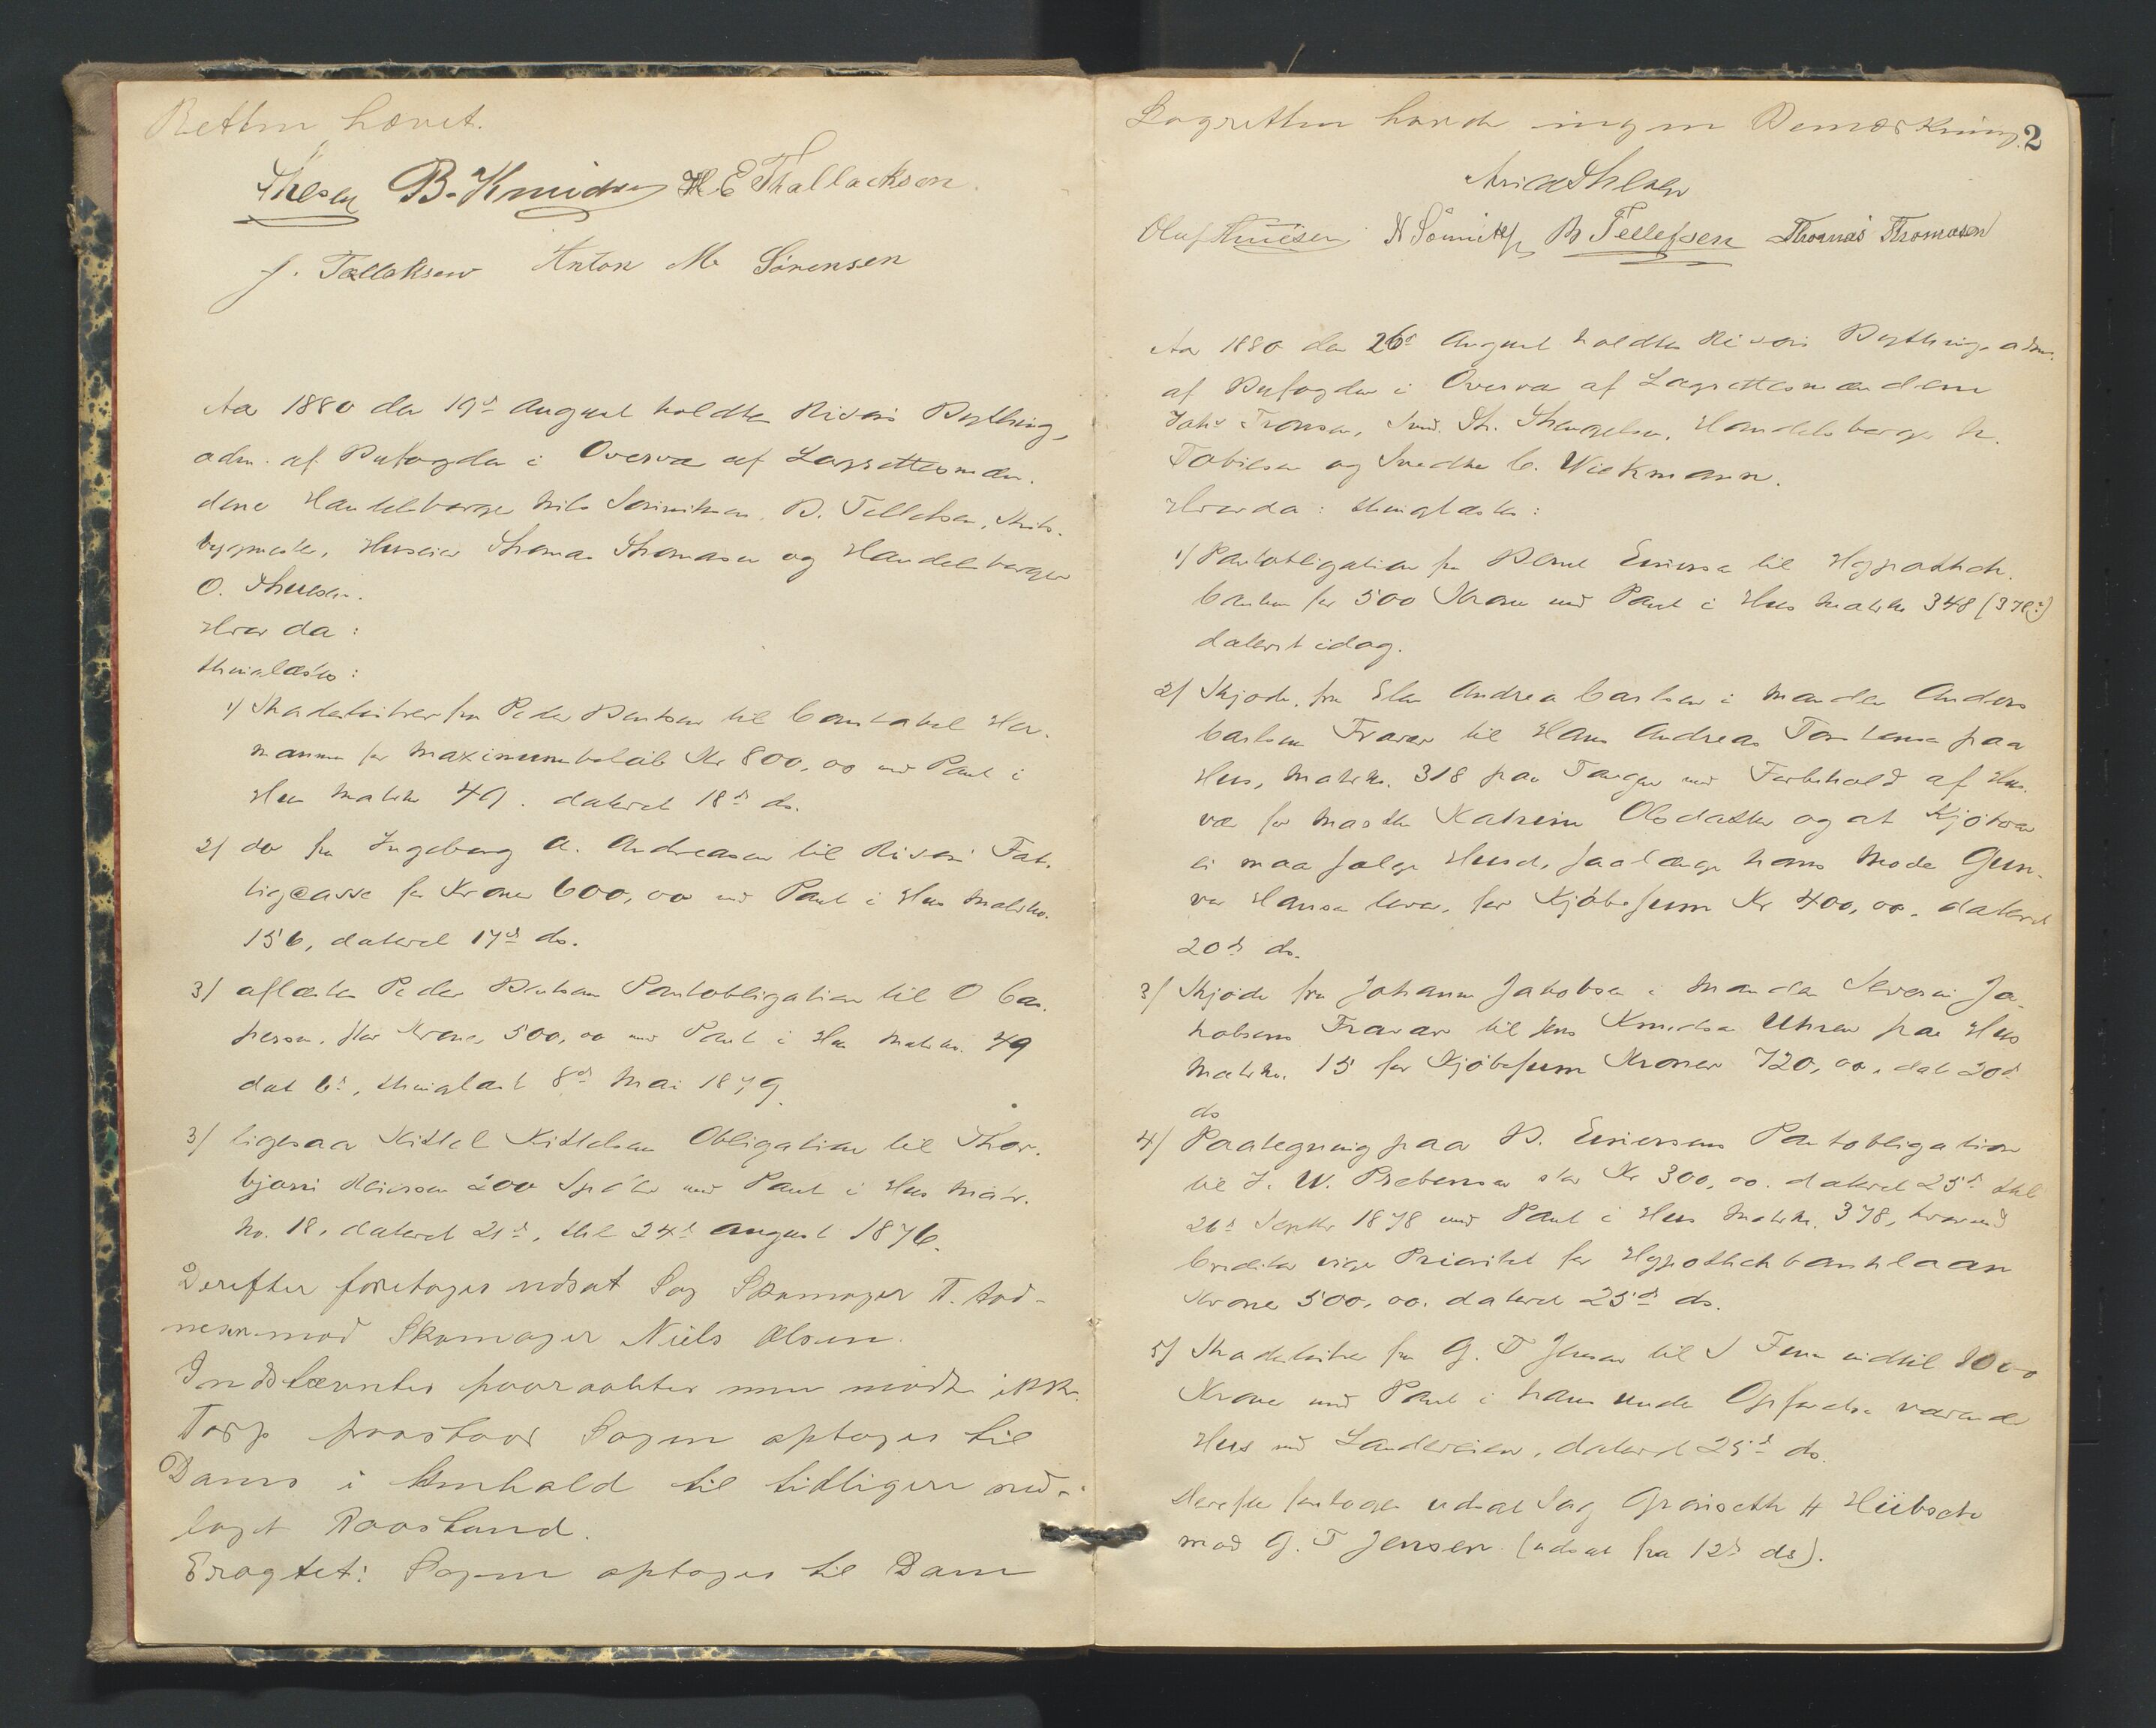 Retten hævet.
Thesen B. Knudsen H E Thallackson
J. Tallaksen Anton M. Sørensen
Aar 1880 den 19d August holdtes Risørs Bything,
adm. af Byfogden i Overvær af Lagrettesmæn-
dene Handelsborger Nils Sørivitsen, B. Tellefsen, Skibs-
bygmester, Huseier Thomas Thomasen og Handelsborger
O. Thuesen.
Hvorda:
thinglæstes:
1) Skadesløsbrev fra Peder Bentsen til Constabel Her-
mansen for Maximumbeløb Kr 800,00 med Pant i
Hus Matr No 49. dateret 18d ds.
2) do fra Ingeborg A. Andreasen til Risørs Fat-
tigcasse for Kroner 600,00 med Pant i Hus Matr No.
156, dateret 17d ds.
3) aflæstes Peder Bentsens Pantobligation til O Cas-
persen, stor Kroner 500,00 med Pant i Hus Matr No. 49
dat 6d, thinglæst 8d Mai 1879.
3) ligesaa Kittel Kittelsens Obligation til Thor-
bjørn Reiersen 200 Spd med Pant i Hus Matr.
No. 18, dateret 21d, thl 24d August 1876.
Derefter foretoges udsat Sag Skomager T. Aad-
nesen mod Skomager Niels Olsen.
Indstævnte paaraabtes men mødte ikke.
Torp paastaar Sagen optages til
Doms i Henhold til tidligere ned-
lagt Paastand.
Eragtet: Sagen optages til Dom
2
Lagretten havde ingen Bemærkning.
Arild Thesen
Oluf Thuesen N Sørivitsen B Tellefsen Thomas Thomasen
Aar 1880 den 26d August holdtes Risørs Bything adm.
af Byfogden i Overvær af Lagrettesmændene
Jahs Tronsen, Smd. Th. Thengelsen, Handelsborger N.
Tobiesen og Snedker C. Wiekmann.
Hvorda: thinglæstes:
1) Pantobligation fra Bernt Einersen til Hypothek-
banken for 500 Kroner med Pant i Hus Matr No 348 (378?)
dateret idag.
2) Skjøde, fra Elen Andrea Carlsen i Manden Anders
Carlsens Fravær til Hans Andreas Torstensen paa
Hus, Matr No. 318 paa Tangen med Forbehold af Hus-
vær for Marthe Katrine Olsdatter og at Kjøberen
ei maa sælge Huset, saalænge hans Moder Gun-
vor Hansen lever, for Kjøbesum Kr 400,00, dateret
20d ds.
3) Skjøde fra Johanne Jakobsen i Manden Severin Ja-
kobsens Fravær til Jens Knudsen Uhren paa Hus
Matr No. 15 for Kjøbesum Kroner 720,00, dat 20d
ds
4) Paategning paa B. Einersens Pantobligation
til J. W. Prebensen stor Kr 300,00. dateret 25d thl
26d Septbr 1878 med Pant i Hus Matr No. 378, hvorved
Creditor viger Prioritet for Hypothekbanklaan
Kroner 500,00. dateret 25d ds.
5) Skadesløsbrev fra G. T Jensen til S Finne indtil 8000
Kroner med Pant i hans under Opførelse værende
Hus med Landeiendom, dateret 25d ds.
Derefter foretoges udsat Sag Grønseth & Hübsch
mod G. T Jensen (udsat fra 12d ds).